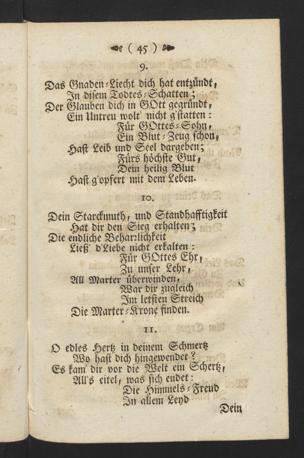 ( 45 )
9.
Das Gnaden-Liecht dich hat entzündt,
In disem Todtes-Schatten;
Der Glauben dich in GOtt gegründt,
Ein Untreu wolt' nicht g'statten:
Für GOttes-Sohn,
Ein Blut-Zeug schon,
Hast Leib und Seel dargeben;
Fürs höchste Gut,
Dein heilig Blut
Hast g'opfert mit dem Leben.
10.
Dein Starckmuth, und Standhafftigkeit
Hat dir den Sieg erhalten;
Die endliche Beharrlichkeit
Ließ' d'Liebe nicht erkalten:
Für GOttes Ehr,
Zu unser Lehr,
All Marter überwinden,
War dir zugleich
Im letsten Streich
Die Marter-Krone finden.
11.
O edles Hertz in deinem Schmertz
Wo hast dich hingewendet?
Es kam dir vor die Welt ein Schertz,
All's eitel, was sich endet:
Die Himmels-Freud
In allem Leyd
Dein